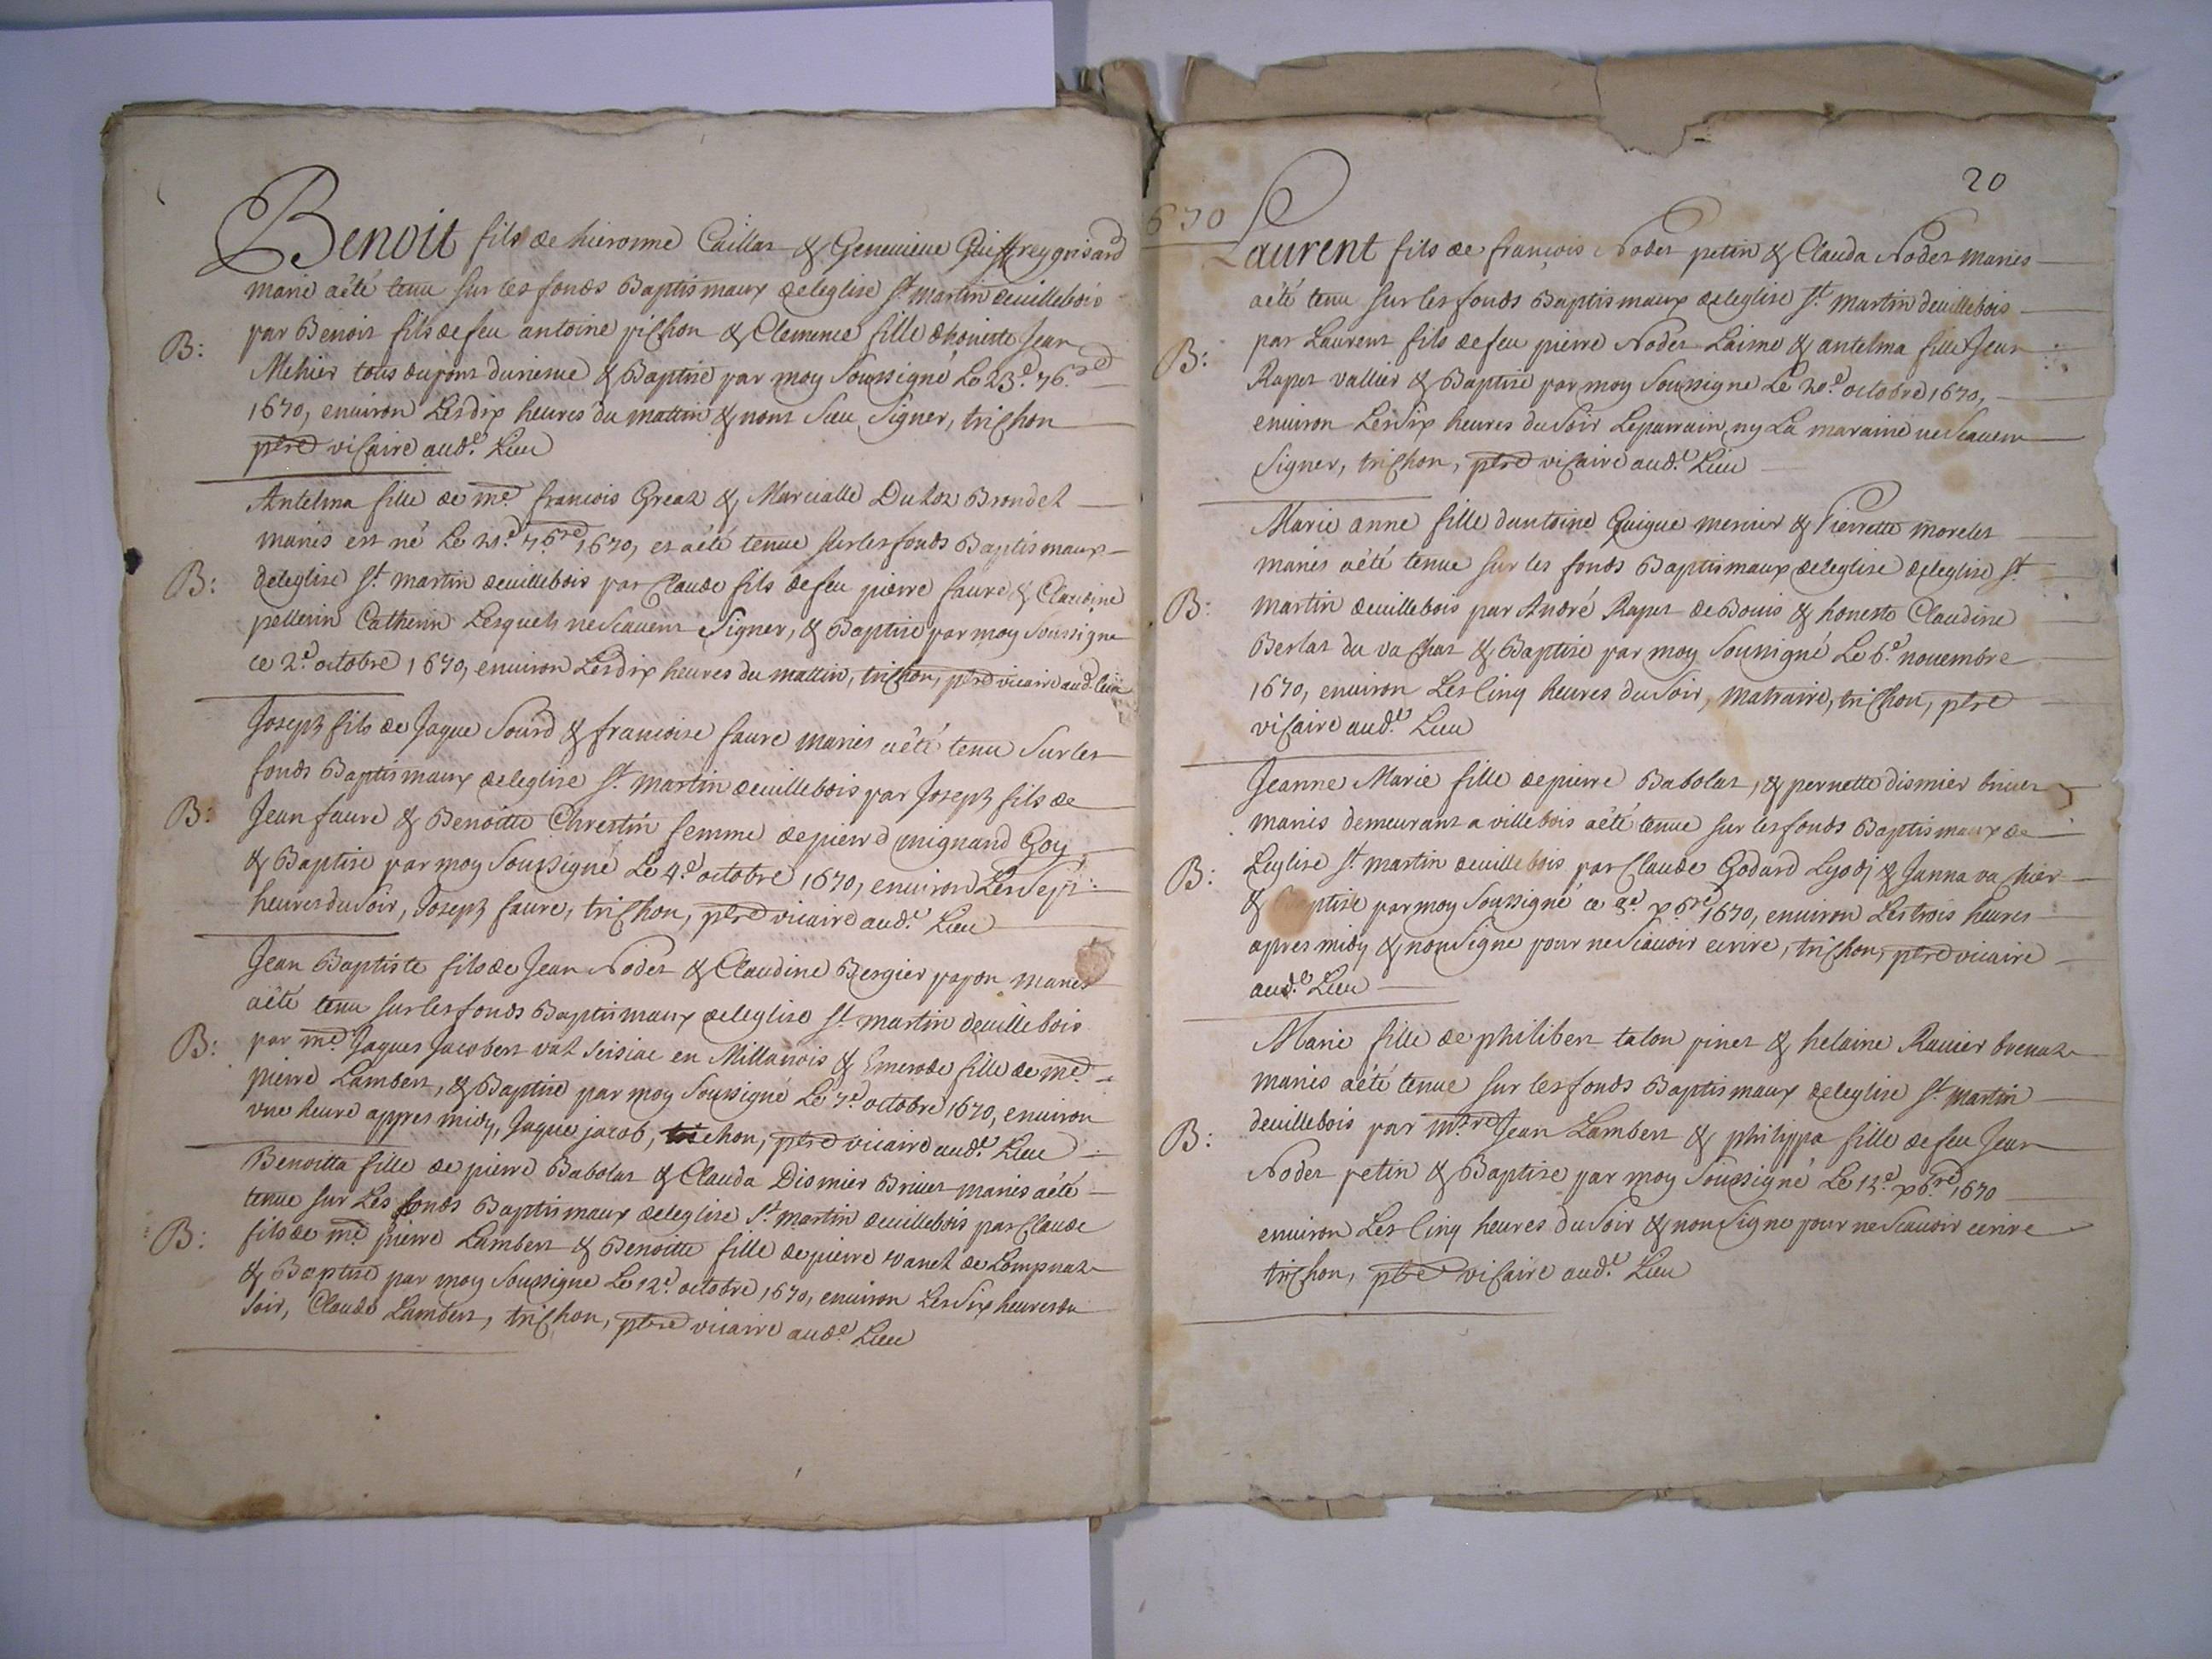 Benoit fils de hieronime Caillat & Geneuieue Guiffrey grisard
marié a été tenu sur les fonds Baptismaux de leglise st. martin deuillebois
B: par Benoit fils de feu antoine pichon & Clemence fille dhoneste Jean
Mehier tous du pont durieme & Baptisé par moy Soussigné Le 23.e 76.re
1670, enuiron Les dix heures du mattin & nont sceu Signer, trichon
ptre vicaire aud.t Lieu
Antelma fille de me. francois Great & Marcialle Duhoz Brondel
mariés est né Le 21.e 7bre 1670, et a été tenue sur les fonds Baptismaux
B: deleglise st. martin deuillebois par Claude fils de feu pierre faure & Claudine
pellerin Catherin Lesquels ne scauent Signer, & Baptise par moy soussigne
ce 2.e octobre 1670, enuiron Les dix heures du mattin, trichon, ptre vicaire aud. lieu
Joseph fils de Jaque Sourd & francoise faure mariés a été tenu Sur les
fonds Baptismaux deleglise st. martin deuillebois par Joseph fils de
B: Jean faure & Benoitte Chrestin femme de pierre mignand Goy
& Baptise par moy Soussigné Le 4.e octobre 1670, enuiron Les Sept
heures du Soir, Joseph faure, trichon, ptre vicaire aud.t Lieu
Jean Baptiste fils de Jean Nodet & Claudine Bergier papon mariés
a été tenu sur les fonds Baptismaux deleglise st. martin deuillebois
B: par me. Jaques Jacobert val seisiac en Millanois & Emerode fille de me.
pierre Lambert, & Baptisé par moy Soussigné Le 7.e octobre 1670, enuiron
vne heure appres midy, Jaque jacob, trichon, ptre vicaire aud.t Lieu
Benoitta fille de pierre Babolat & Clauda Dismier Briuet mariés a été
tenue sur Les fonds Baptismaux deleglise st. martin deuillebois par Claude
B: fils de me. pierre Lambert & Benoitte fille de pierre vanel de Lompnaz
& Baptise par moy Soussigne Le 12.e octobre 1670, enuiron Les Six heures du
Soir, Claude Lambert, trichon, ptre vicaire aud.t Lieu
20
670
Laurent fils de francois Nodet petin & Clauda Nodet mariés
a été tenu sur les fonds Baptismaux deleglise st. martin deuillebois
B: par Laurent fils de feu pierre Nodet Laime & antelma fille Jean
Rapet vallier & Baptisé par moy Soussigne Le 20.e octobre 1670,
enuiron Les Six heures du Soir Le parrain ny La maraine ne Scauent
Signer, trichon, ptre vicaire aud.t Lieu
Marie anne fille dantoine Guigue mernier & Pierrette morelet
mariés a été tenue sur les fonds Baptismaux deleglise deleglise st.
B: martin deuillebois par André Rapet de Bouis & honeste Claudine
Berlat du vachat & Baptise par moy Soussigné Le 6.e nouembre
1670, enuiron Les Cinq heures du Soir, matraire, trichon, ptre
vicaire aud.t Lieu
Jeanne Marie fille de pierre Babolat, & pernette dismier briuet
mariés demeurant a villebois a été tenue sur les fonds Baptismaux de
B: Leglise st. martin deuillebois par Claude Godard & Janna vachier
& Baptise par moy Soussigné ce 3.e xbre 1670, enuiron Les trois heures
apres midy & non Signe pour ne Scauoir ecrire, trichon, ptre vicaire
aud.t Lieu
Marie fille de philibert talon pinet & helaine Rauier brenaz
mariés a été tenue sur les fonds Baptismaux deleglise st. martin
B: deuillebois par mtre Jean Lambert & philippa fille de feu Jean
Nodet petin & Baptise par moy Soussigné Le 13.e xbre 1670
enuiron Les Cinq heures du Soir & non Signe pour ne Scauoir ecrire
trichon, ptre vicaire aud.t Lieu